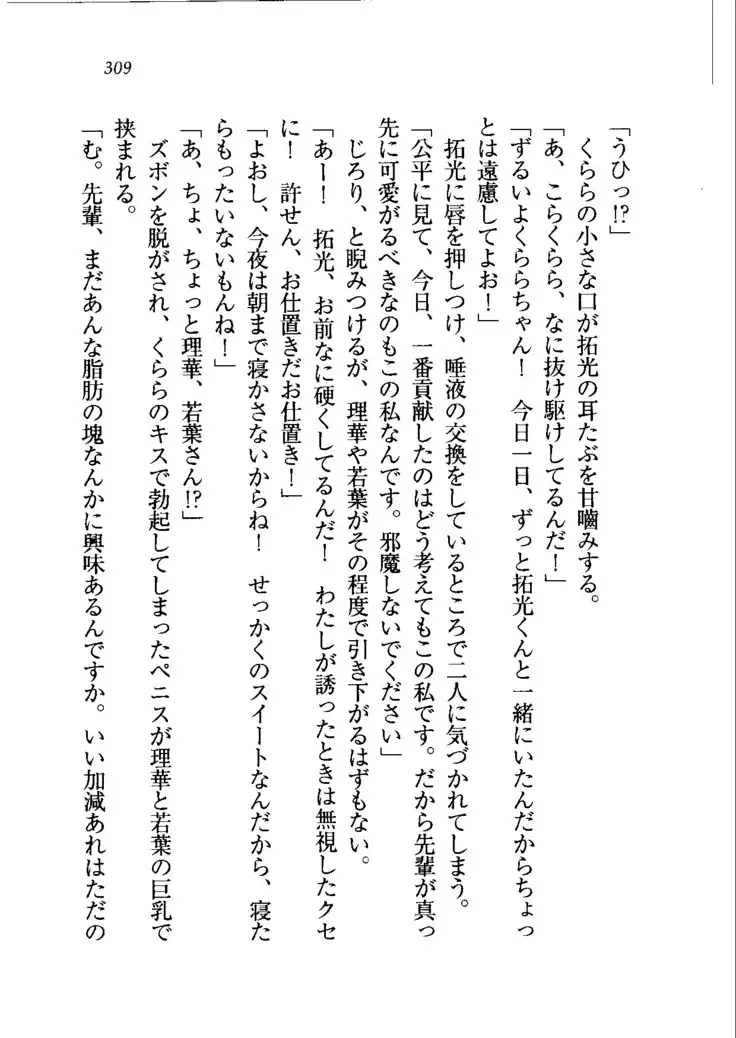 309
「うひっ!?」
　くららの小さな口が拓光の耳たぶを甘嚙みする。
「あ、こらくらら、なに抜け駆けしてるんだ！」
「ずるいよくららちゃん！　今日一日、ずっと拓光くんと一緒にいたんだからちょっ
とは遠慮してよお！」
　拓光に唇を押しつけ、唾液の交換をしているところで二人に気づかれてしまう。
「公平に見て、今日、一番貢献したのはどう考えてもこの私です。だから先輩が真っ
先に可愛がるべきなのもこの私なんです。邪魔しないでください」
　じろり、と睨みつけるが、理華や若葉がその程度で引き下がるはずもない。
「あー！　拓光、お前なに硬くしてるんだ！　わたしが誘ったときは無視したクセ
に！　許せん、お仕置きだお仕置き！」
「よおし、今夜は朝まで寝かさないからね！　せっかくのスイートなんだから、寝た
らもったいないもんね！」
「あ、ちょ、ちょっと理華、若葉さん!?」
　ズボンを脱がされ、くららのキスで勃起してしまったペニスが理華と若葉の巨乳で
挟まれる。
「む。先輩、まだあんな脂肪の塊なんかに興味あるんですか。いい加減あれはただの